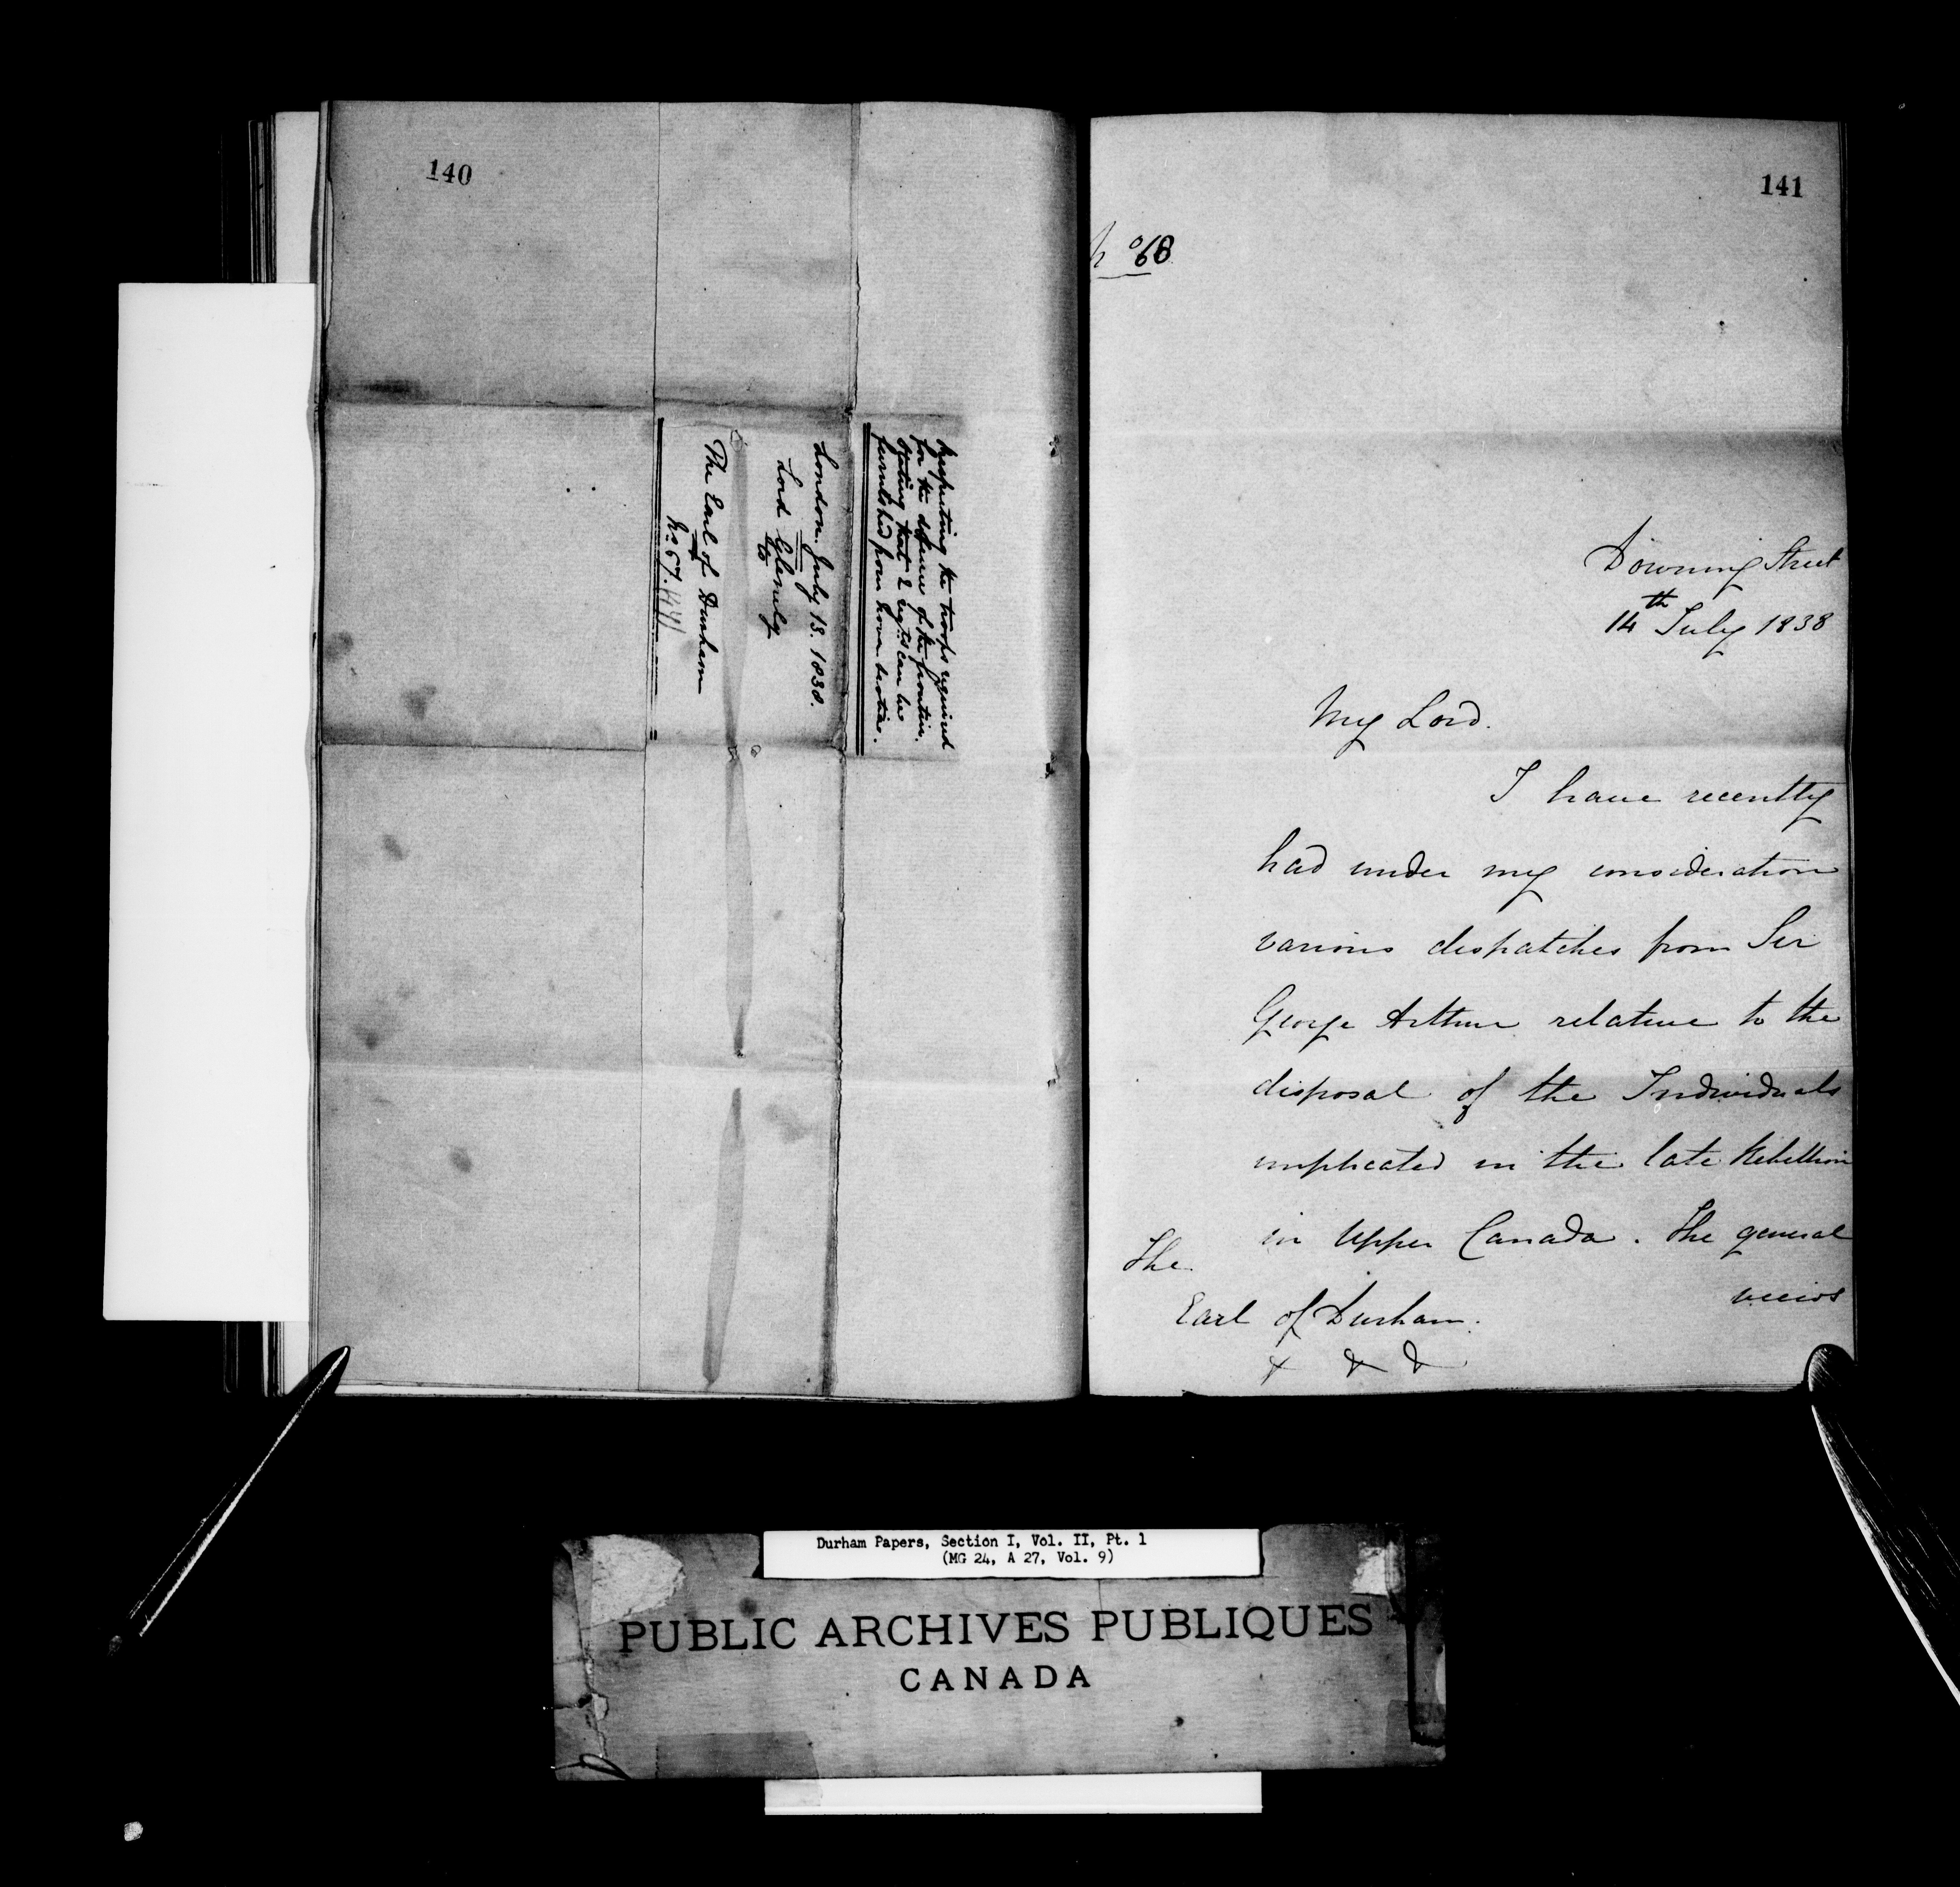 140
London. July 13. 1838.
Lord Glenelg
to
The Earl of Durham
No. 67.
Respecting the troops required
for the defence of the frontier.
Stating that 2 regts. can be
furnished from Nova Scotia.
141
No 68
Downing Street
14th July 1838
My Lord.
I have recently
had under my consideration
various dispatches from Sir
George Arthur relative to the
disposal of the Individuals
implicated in the late Rebellion
in Upper Canada. The general
views
The
Earl of Durham.
& & &
Durham Papers, Section I, Vol. II, Pt. 1
(MG 24, A 27, Vol. 9)
PUBLIC ARCHIVES PUBLIQUES
CANADA